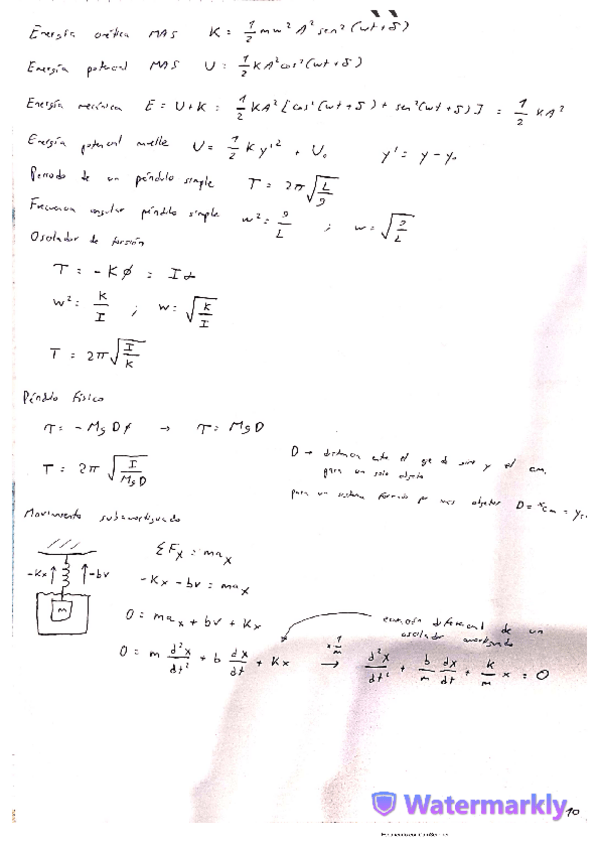 Energía cinética MAS K = 1/2 mw² A² sen² (wt + δ)
Energía potencial MAS U = 1/2 KA² cos² (wt + δ)
Energía mecánica E = U + K = 1/2 KA² [cos² (wt + δ) + sen² (wt + δ)] = 1/2 KA²
Energía potencial muelle U = 1/2 K y'² + U₀ y' = y - y₀
Periodo de un péndulo simple T = 2π √(L/g)
Frecuencia angular péndulo simple w² = g/L ; w = √(g/L)
Oscilador de torsión
τ = -Kϕ = Iα
w² = K/I ; w = √(K/I)
T = 2π √(I/K)
Péndulo físico
τ = -MgDϕ → τ = MgD
D → distancia entre el eje de giro y el cm.
para un solo objeto
T = 2π √(I/MgD)
para un sistema formado por mas objetos D = xcm = y
Movimiento subamortiguado
ΣFx = max
-Kx -bv
-Kx - bv = max
m
0 = max + bv + Kx
ecuación diferencial de un
oscilador amortiguado
0 = m d²x/dt² + b dx/dt + Kx x 1/m → d²x/dt² + b/m dx/dt + K/m x = 0
Watermarkly
10